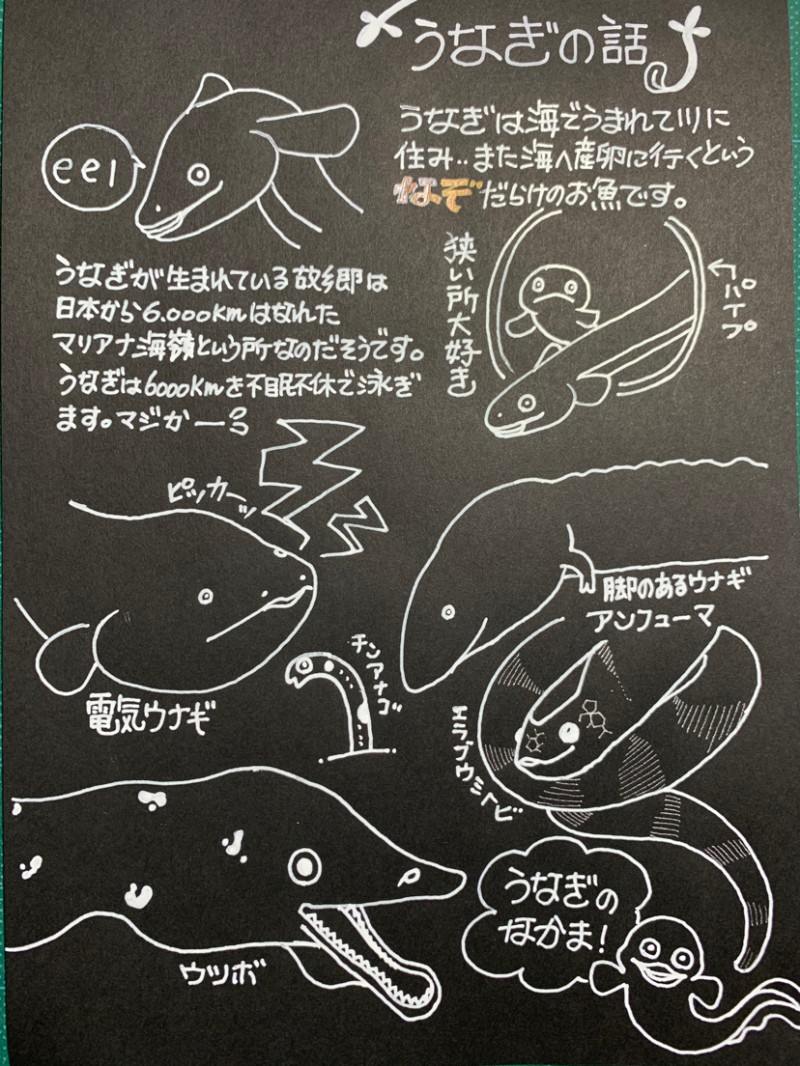 うなぎの話
eel
うなぎは海でうまれて川に
住み‥また海へ産卵に行くという
なぞだらけのお魚です。
狭い所大好き
パイプ
うなぎが生まれている故郷は
日本から6.000kmはなれた
マリアナ海嶺という所なのだそうです。
うなぎは6000Kmを不眠不休で泳ぎ
ます。マジかー
ピッカーッ
電気ウナギ
チンアナゴ
脚のあるウナギ
アンフューマ
エラブウミヘビ
ウツボ
うなぎの
なかま!